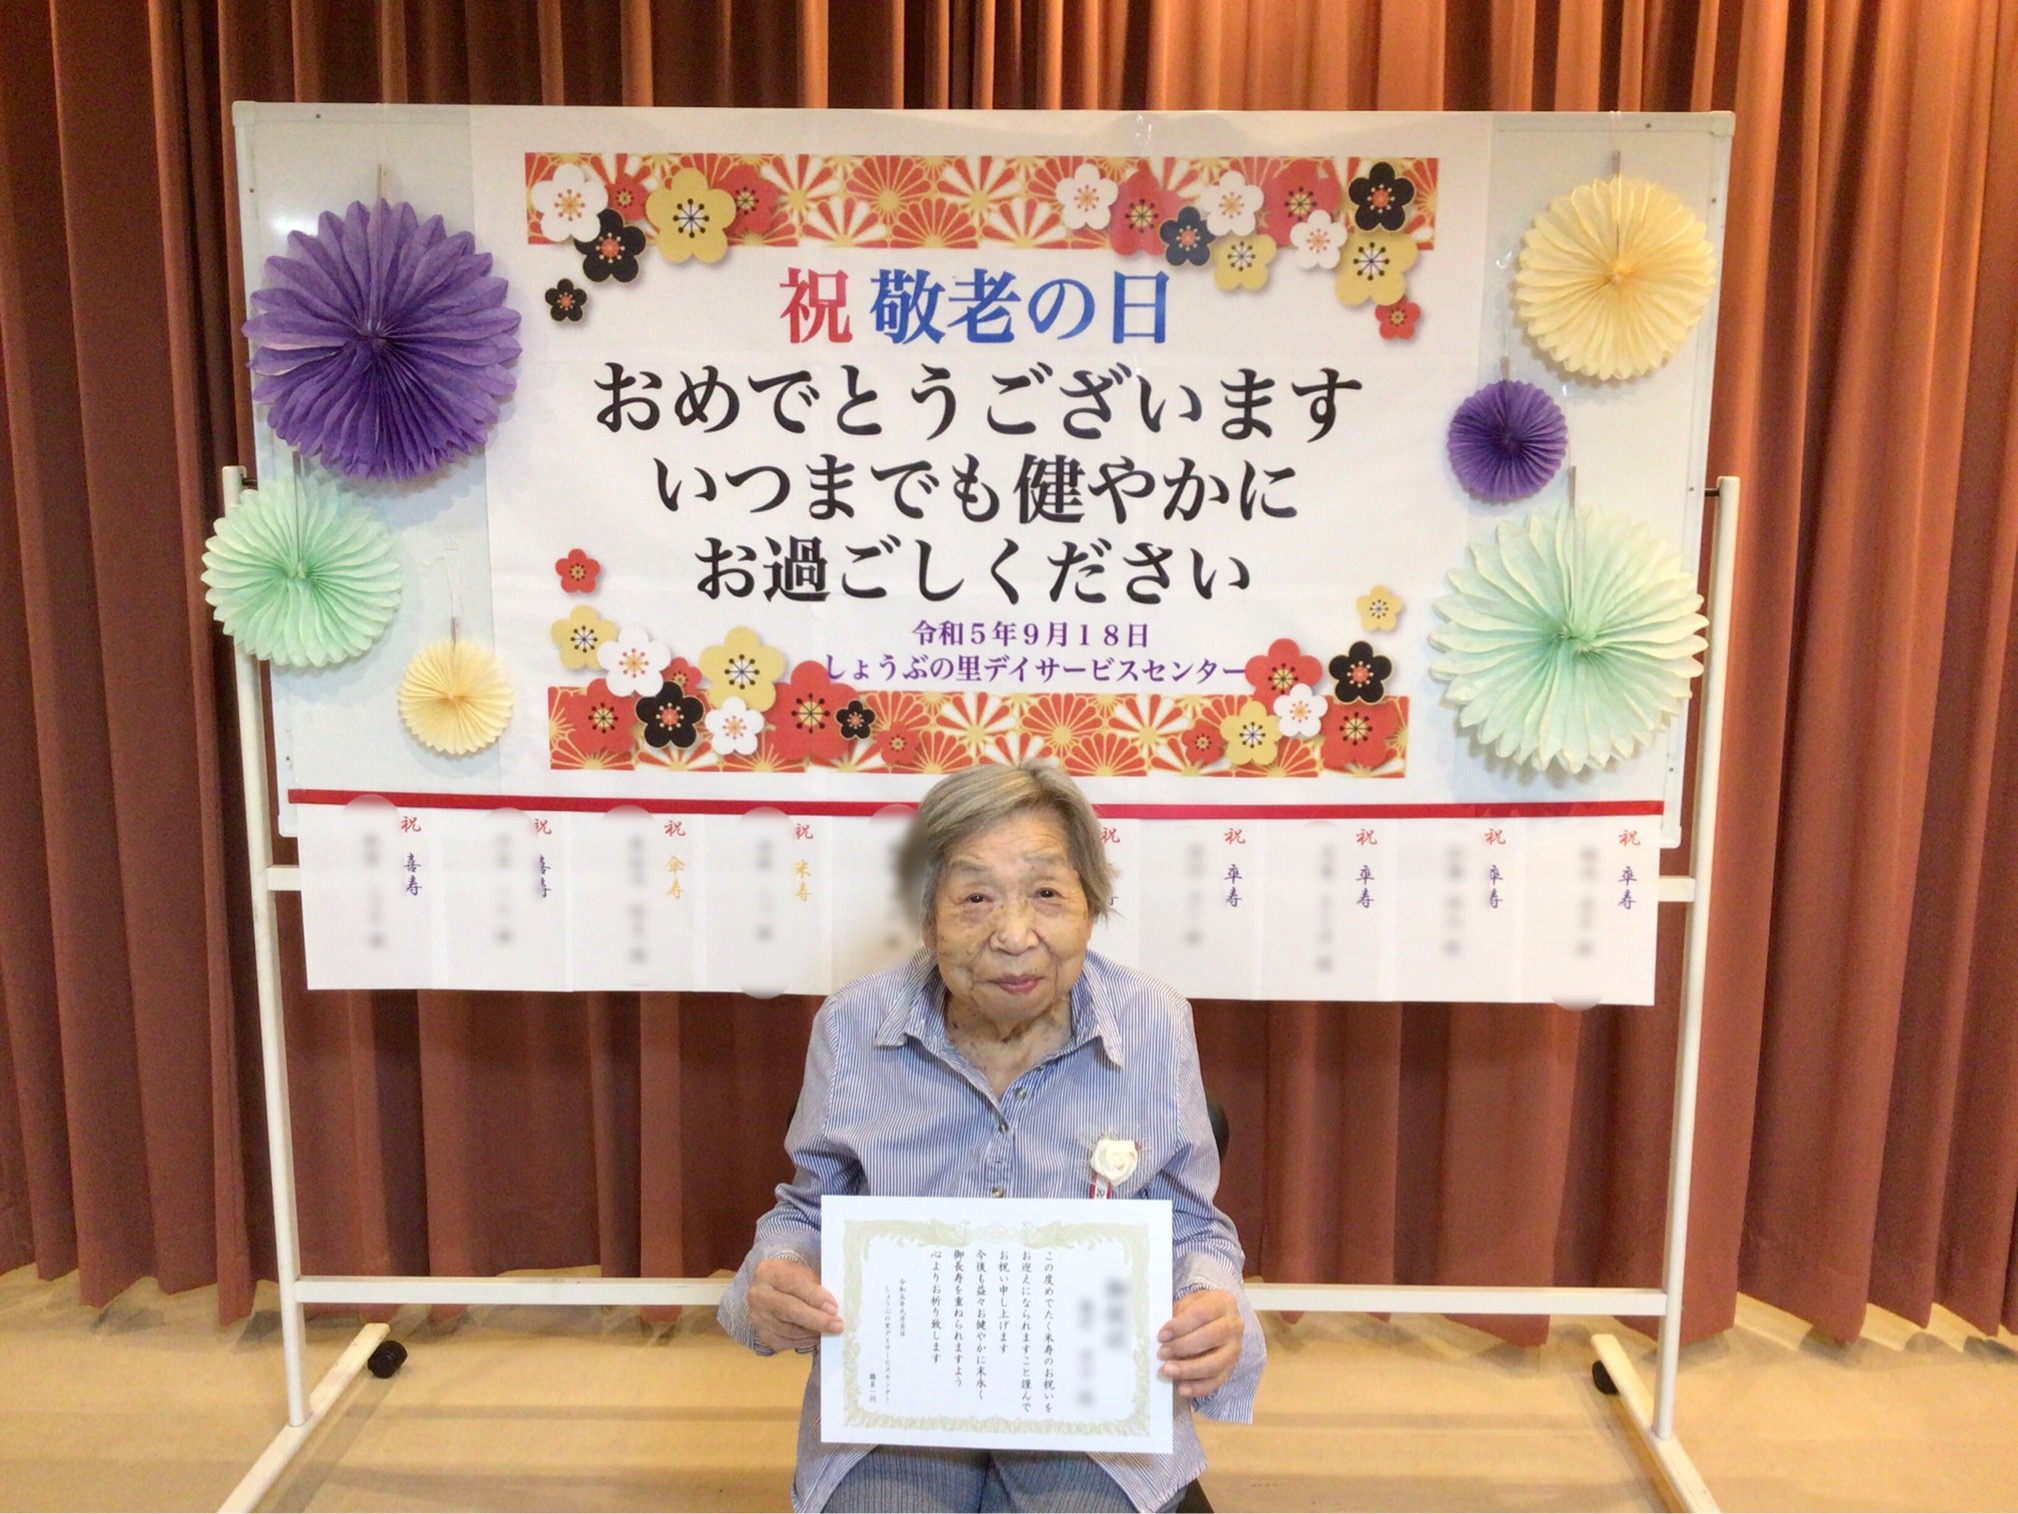 祝 敬老の日
おめでとうございます
いつまでも健やかに
お過ごしください
令和5年9月18日
しょうぶの里デイサービスセンター
祝 卒寿
祝 卒寿
祝 卒寿
祝 卒寿
祝
祝 米寿
祝 傘寿
祝 喜寿
祝 喜寿
この度めでたく米寿のお祝いを
お迎えになられますこと謹んで
お祝い申し上げます
今後も益々お健やかに末永く
御長寿を重ねられますよう
心よりお祈り致します
令和五年九月吉日
しょうぶの里デイサービスセンター
職員一同